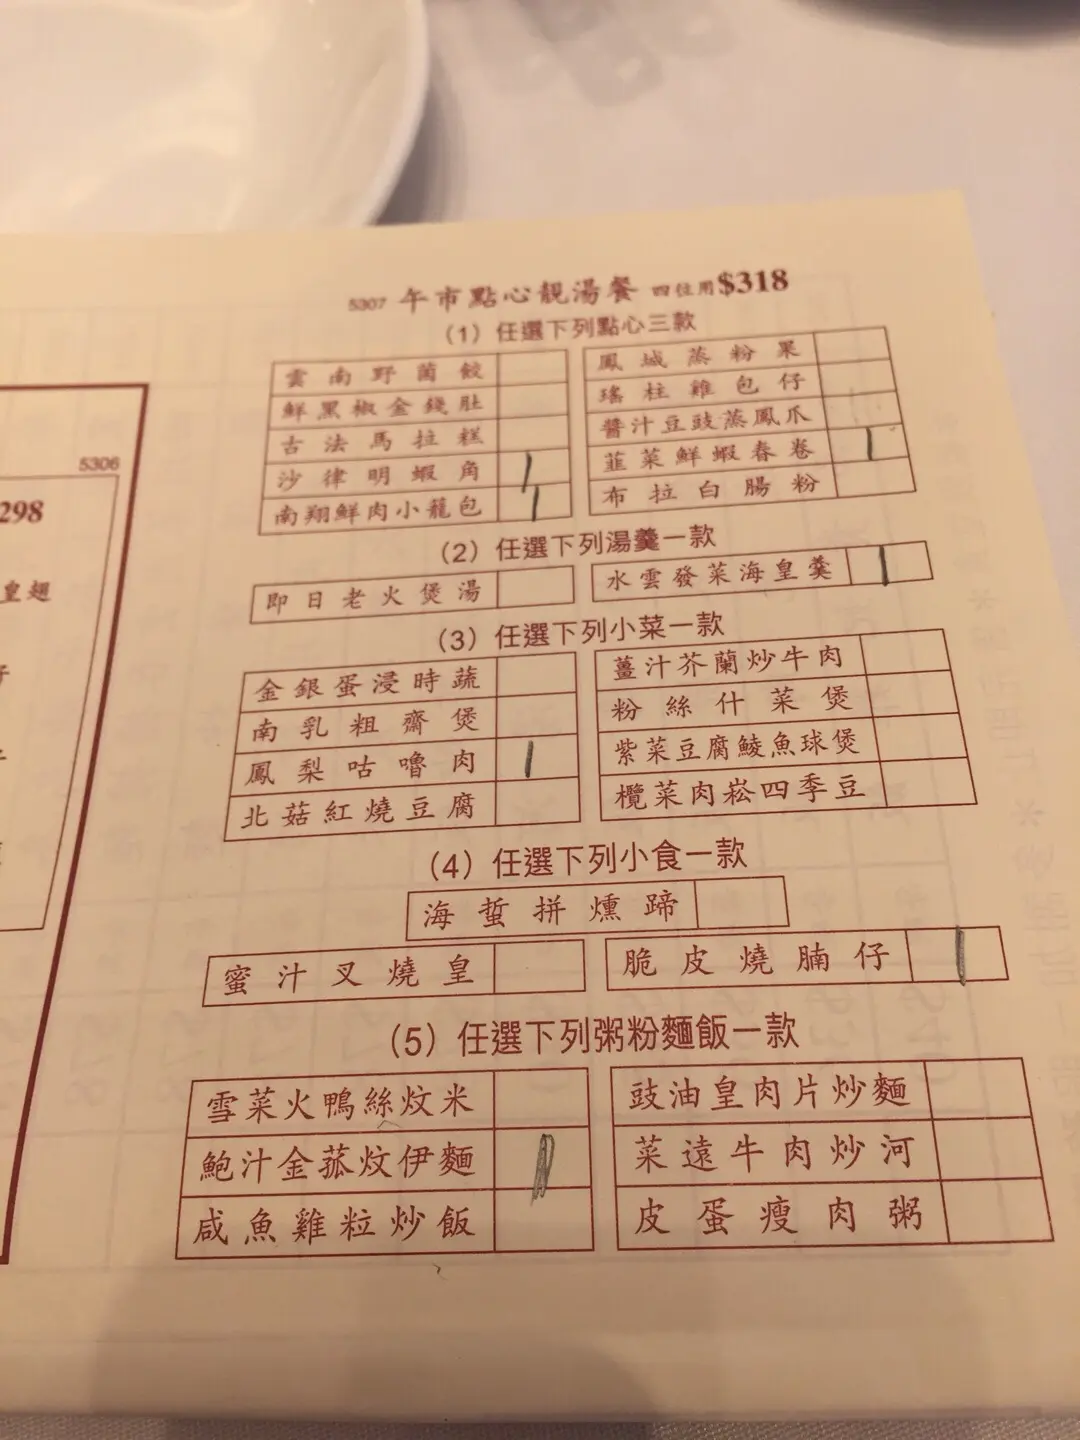 5306
298
皇翅
5307 午市點心靚湯餐 四位用$318
(1) 任選下列點心三款
雲南野菌餃
鮮黑椒金錢肚
古法馬拉糕
沙律明蝦角
南翔鮮肉小籠包
鳳城蒸粉果
瑤柱雞包仔
醬汁豆豉蒸鳳爪
韮菜鮮蝦春卷
布拉白腸粉
(2) 任選下列湯羹一款
即日老火煲湯
水雲發菜海皇羹
(3) 任選下列小菜一款
金銀蛋浸時蔬
南乳粗齋煲
鳳梨咕嚕肉
北菇紅燒豆腐
薑汁芥蘭炒牛肉
粉絲什菜煲
紫菜豆腐鯪魚球煲
欖菜肉崧四季豆
(4) 任選下列小食一款
海蜇拼燻蹄
蜜汁叉燒皇
脆皮燒腩仔
(5) 任選下列粥粉麵飯一款
雪菜火鴨絲炆米
鮑汁金菰炆伊麵
咸魚雞粒炒飯
豉油皇肉片炒麵
菜遠牛肉炒河
皮蛋瘦肉粥